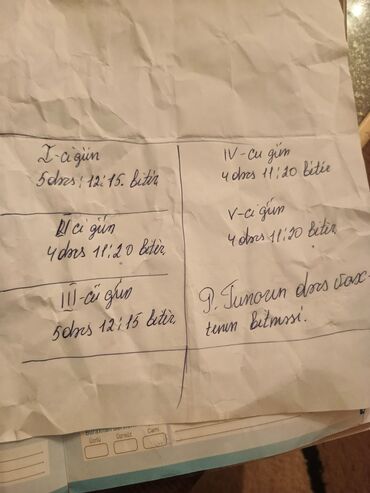 I-ci gün
5 dərs; 12:15. bitir,
II ci gün
4 dərs 11:20 bitir,
III-cü gün
5 dərs 12:15 bitir,
IV-cu gün
4 dərs 11:20 bitir
V-ci gün
4 dərs 11:20 bitir.
dərs vax-
tının bitməsi.
Cəmi